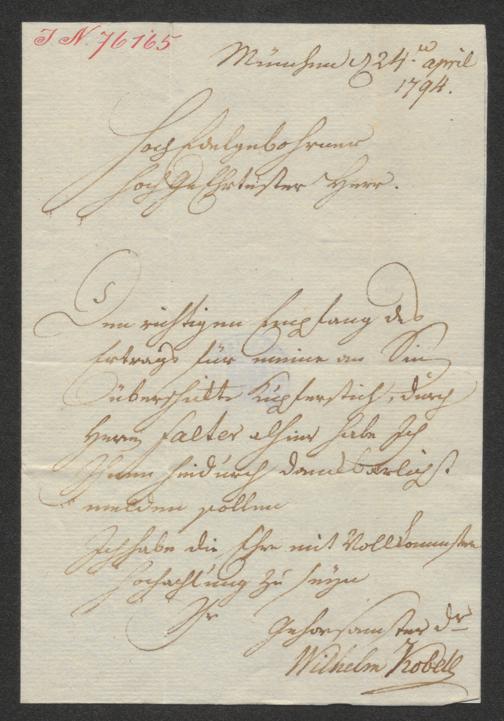 I N. 76165
München d 24.ten april
1794.
Hoch Edelgebohrner
Hoch Geehrtester Herr.
Den richtigen Empfang des
Ertrags für meine an Sie
überschikte Kupferstich, durch
Herrn Falter alhier habe Ich
Ihnen hiedurch dankbarlichst
melden sollen
Ich habe die Ehre mit Vollkommenster
Hochachtung zu seyn
Ihr
gehorsamster Dr
Wilhelm Kobell